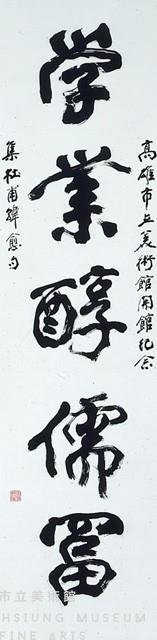 高雄市立美術館開館紀念
学業醇儒富
集杜甫韓愈句
市立美術館
HSIUNG MUSEUM
FINE ARTS